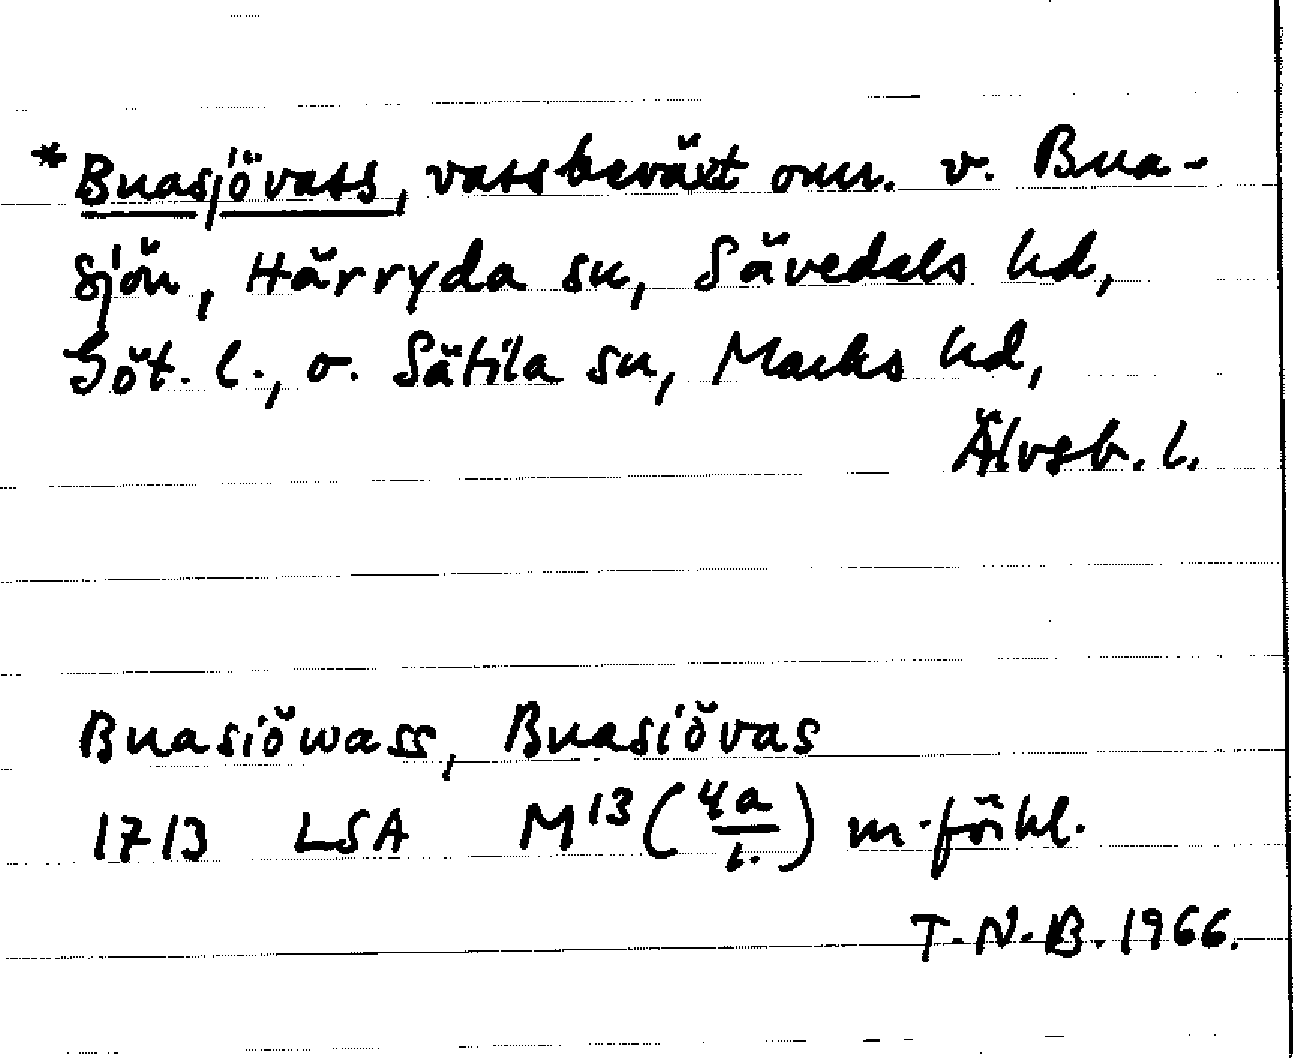 * Buasjövass, vassbeväxt omr. v. Bua-
sjön, Härryda sn, Sävedals hd,
Göt. l., o. Sätila sn, Marks hd,
Älvsb. l.
Buasiöwass, Buasiövas
1713 LSA M¹³ (4a/1.) m. förkl.
T.N.B. 1966.